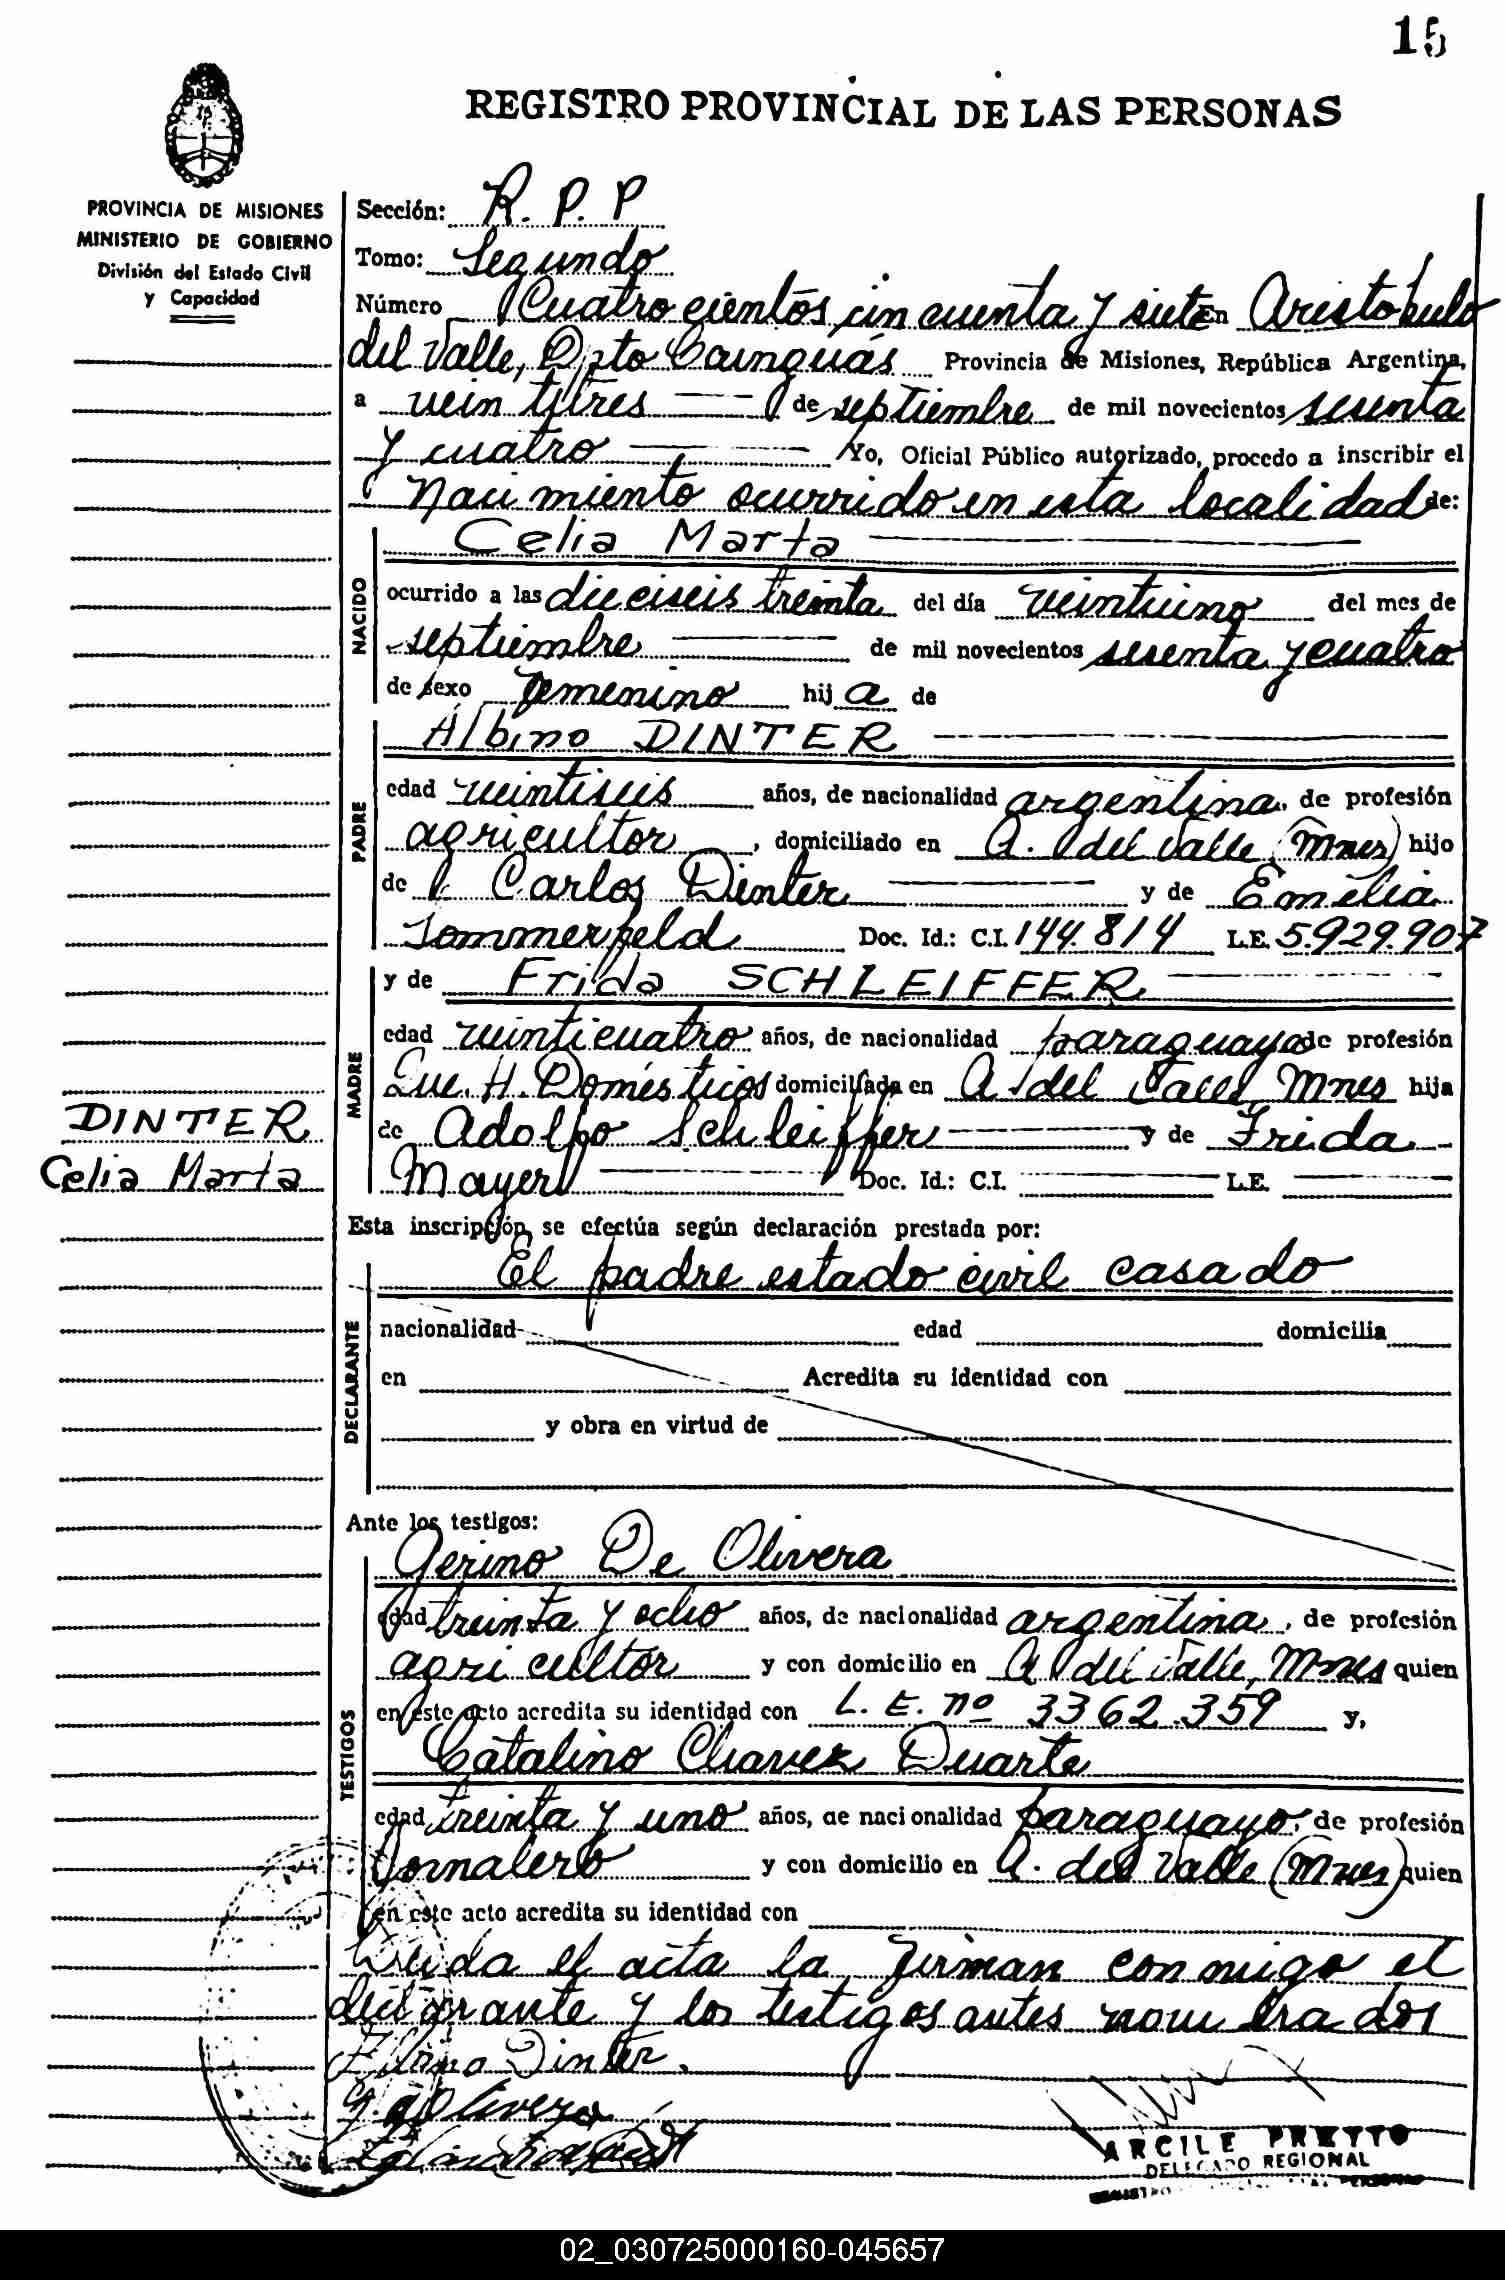 15
REGISTRO PROVINCIAL DE LAS PERSONAS
PROVINCIA DE MISIONES
MINISTERIO DE GOBIERNO
División del Estado Civil
y Capacidad
Sección: R. P. P
Tomo: Segundo
Número Cuatrocientos cincuenta y siete en Aristobulo
del Valle, Dpto Cainguás Provincia de Misiones, República Argentina,
a veintitres de septiembre de mil novecientos sesenta
y cuatro Yo, Oficial Público autorizado, procedo a inscribir el
Nacimiento ocurrido en esta localidad de:
NACIDO
Celia Marta
ocurrido a las dieciseis treinta del día veintiuno del mes de
septiembre de mil novecientos sesenta y cuatro
de sexo femenino hij a de
PADRE
Albino DINTER
edad veintiseis años, de nacionalidad argentina, de profesión
agricultor, domiciliado en A. del Valle (Mnes) hijo
de Carlos Dinter y de Emelia
Sommerfeld Doc. Id.: C.I. 144.814 L.E. 5.929.907
MADRE
y de Frida SCHLEIFFER
edad veinticuatro años, de nacionalidad paraguaya de profesión
Que. H. Domésticos domiciliada en A. del Valle, Mnes hija
de Adolfo Schleiffer y de Frida
Mayer Doc. Id.: C.I. L.E.
DINTER
Celia Marta
Esta inscripción se efectúa según declaración prestada por:
DECLARANTE
El padre estado civil casado
nacionalidad edad domicilia
en Acredita su identidad con
y obra en virtud de
Ante los testigos:
TESTIGOS
Gerino De Olivera
edad treinta y ocho años, de nacionalidad argentina, de profesión
agricultor y con domicilio en A del Valle, Mnes quien
en este acto acredita su identidad con L. E. nº 3362.359 y,
Catalino Chavez Duarte
edad treinta y uno años, de nacionalidad paraguayo, de profesión
Jornalero y con domicilio en A. del Valle (Mnes) quien
en este acto acredita su identidad con
Leida el acta la firman conmigo el
declarante y los testigos antes nombrados
Albino Dinter.
G. d Olivera
ARCILE PRETTO
DELEGADO REGIONAL
02_030725000160-045657